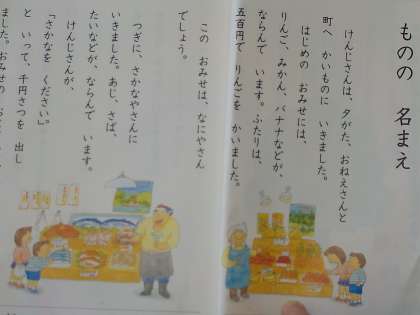 ものの 名まえ
けんじさんは、夕がた、おねえさんと
町へ かいものに いきました。
はじめの おみせには、
りんご、みかん、バナナなどが、
ならんで います。ふたりは、
五百円で りんごを かいました。
この おみせは、なにやさん
でしょう。
つぎに、さかなやさんに
いきました。あじ、さば、
たいなどが、ならんで います。
けんじさんが、
「さかなを ください。」
と いって、千円さつを 出し
ました。おみせの